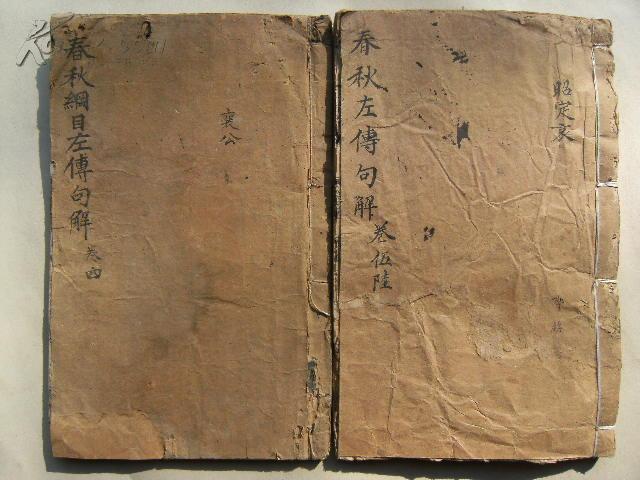 春秋綱目左傳句解
卷四
襄公
春秋左傳句解
卷伍陸
昭定哀